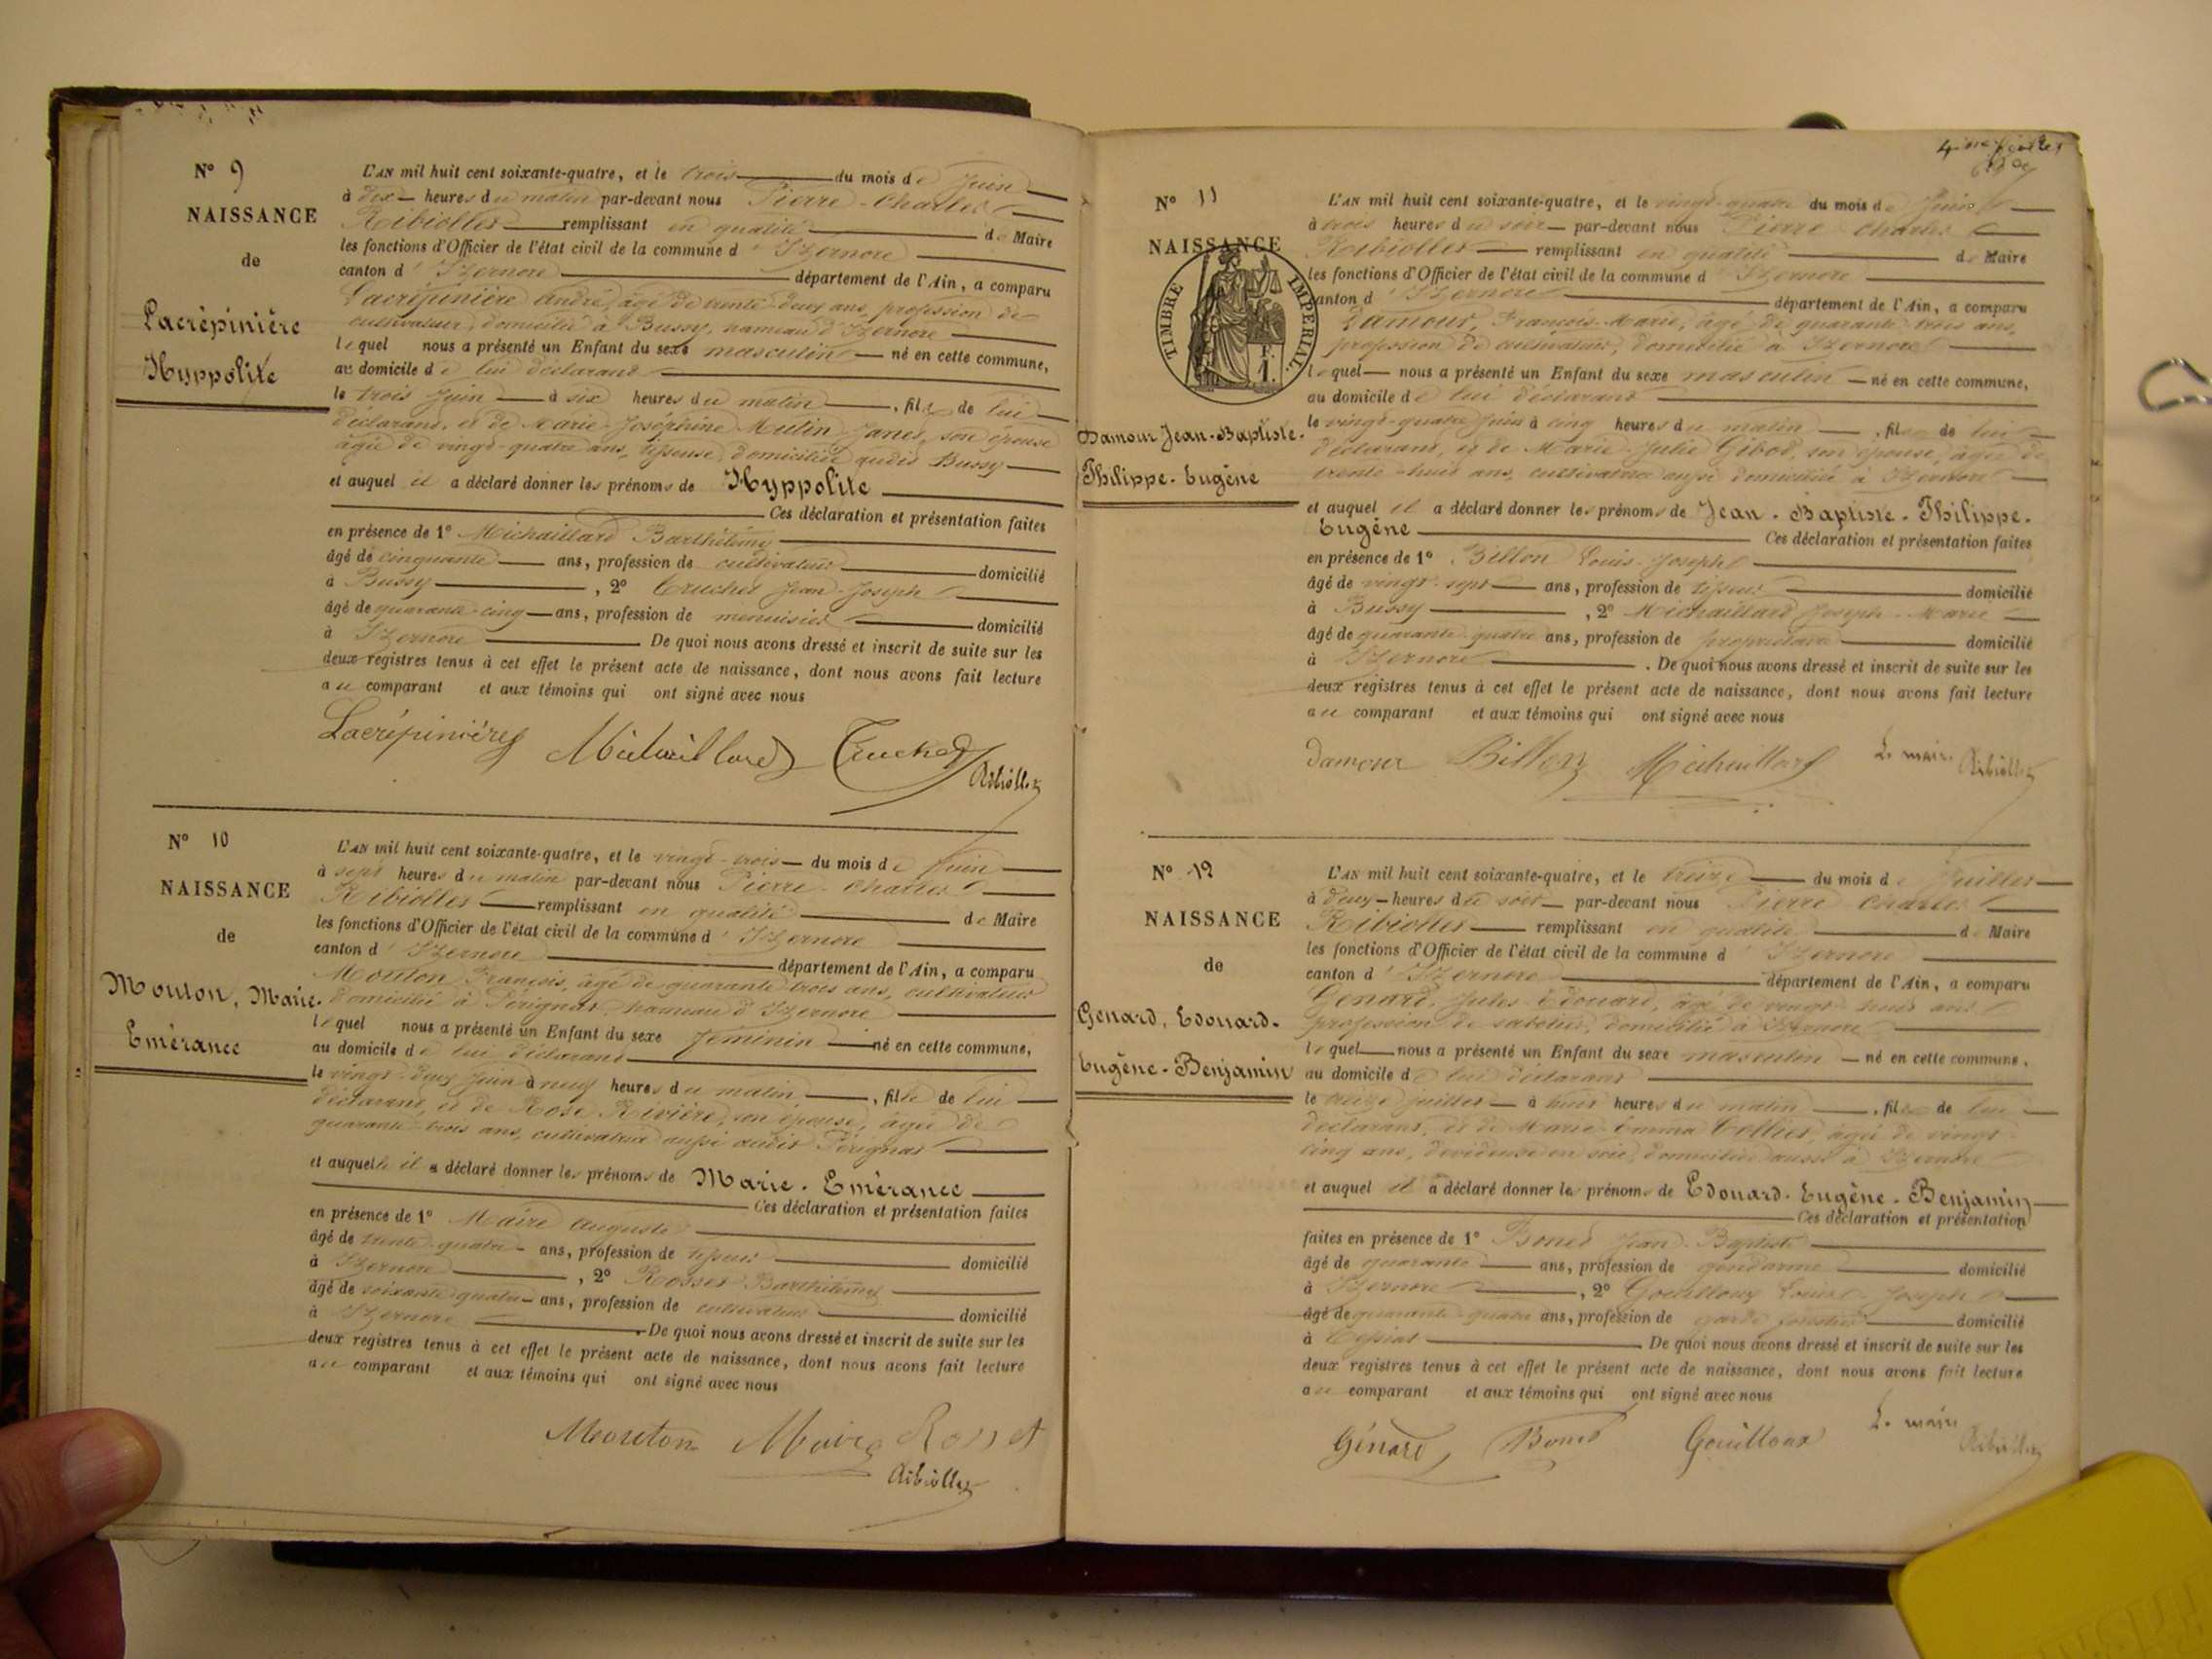 N° 9
NAISSANCE
de
Lacrépinière
Hyppolite
L'AN mil huit cent soixante-quatre, et le trois du mois de Juin
à dix heures du matin par-devant nous Pierre-Charles
Ribiollet remplissant en qualité de Maire
les fonctions d'Officier de l'état civil de la commune d'Izernore
canton d'Izernore département de l'Ain, a comparu
Lacrépinière André, âgé de trente-deux ans, profession de
cultivateur, domicilié à Bussy, hameau d'Izernore
lequel nous a présenté un Enfant du sexe masculin né en cette commune,
au domicile de lui déclarant
le trois Juin à six heures du matin, fils de lui
déclarant, et de Marie-Joséphine Mutin-Janet, son épouse
âgée de vingt-quatre ans, tisseuse, domiciliée audit Bussy
et auquel il a déclaré donner les prénoms de Hyppolite
Ces déclaration et présentation faites
en présence de 1° Michaillard Barthélemy
âgé de cinquante ans, profession de cultivateur domicilié
à Bussy, 2° Truchet Jean-Joseph
âgé de quarante-cinq ans, profession de menuisier domicilié
à Izernore De quoi nous avons dressé et inscrit de suite sur les
deux registres tenus à cet effet le présent acte de naissance, dont nous avons fait lecture
au comparant et aux témoins qui ont signé avec nous
Lacrépinière Michaillard Truchet
Ribiollet
N° 10
NAISSANCE
de
Mouton, Marie-
Emérance
L'AN mil huit cent soixante-quatre, et le vingt-trois du mois de Juin
à sept heures du matin par-devant nous Pierre-Charles
Ribiollet remplissant en qualité de Maire
les fonctions d'Officier de l'état civil de la commune d'Izernore
canton d'Izernore département de l'Ain, a comparu
Mouton François, âgé de quarante-trois ans, cultivateur
domicilié à Pérignat, hameau d'Izernore
lequel nous a présenté un Enfant du sexe féminin né en cette commune,
au domicile de lui déclarant
le vingt-deux Juin à neuf heures du matin, fille de lui
déclarant, et de Rose Rivière, son épouse, âgée de
quarante-trois ans, cultivateur aussi audit Pérignat
et auquelle il a déclaré donner les prénoms de Marie-Emérance
Ces déclaration et présentation faites
en présence de 1° Maire Auguste
âgé de trente-quatre ans, profession de tisseur domicilié
à Izernore, 2° Rosset Barthélemy
âgé de soixante-quatre ans, profession de cultivateur domicilié
à Izernore De quoi nous avons dressé et inscrit de suite sur les
deux registres tenus à cet effet le présent acte de naissance, dont nous avons fait lecture
au comparant et aux témoins qui ont signé avec nous
Mouton Maire Rosset
Ribiollet
N° 11
NAISSANCE
TIMBRE IMPERIAL.
F.
1.
Damour Jean-Baptiste-
Philippe-Eugène
L'AN mil huit cent soixante-quatre, et le vingt-quatre du mois de Juin
à trois heures du soir par-devant nous Pierre-Charles
Ribiollet remplissant en qualité de Maire
les fonctions d'Officier de l'état civil de la commune d'Izernore
canton d'Izernore département de l'Ain, a comparu
Damour, François-Marie, âgé de quarante-trois ans,
profession de cultivateur, domicilié à Izernore
lequel nous a présenté un Enfant du sexe masculin né en cette commune,
au domicile de lui déclarant
le vingt-quatre Juin à cinq heures du matin, fils de lui
déclarant, et de Marie-Julie Gibod, son épouse, âgée de
trente-huit ans, cultivatrice aussi domiciliée à Izernore
et auquel il a déclaré donner les prénoms de Jean-Baptiste-Philippe-
Eugène Ces déclaration et présentation faites
en présence de 1° Billon Louis-Joseph
âgé de vingt-sept ans, profession de tisseur domicilié
à Bussy, 2° Michaillard Joseph-Marie
âgé de quarante-quatre ans, profession de propriétaire domicilié
à Izernore. De quoi nous avons dressé et inscrit de suite sur les
deux registres tenus à cet effet le présent acte de naissance, dont nous avons fait lecture
au comparant et aux témoins qui ont signé avec nous
Damour Billon Michaillard Le maire Ribiollet
N° 12
NAISSANCE
de
Genard, Edouard-
Eugène-Benjamin
L'AN mil huit cent soixante-quatre, et le treize du mois de Juillet
à deux heures du soir par-devant nous Pierre Charles
Ribiollet remplissant en qualité de Maire
les fonctions d'Officier de l'état civil de la commune d'Izernore
canton d'Izernore département de l'Ain, a comparu
Genard, Jules-Edouard, âgé de vingt-huit ans
profession de sabotier, domicilié à Izernore
lequel nous a présenté un Enfant du sexe masculin né en cette commune,
au domicile de lui déclarant
le treize juillet à huit heures du matin, fils de lui
déclarant, et de Marie-Emma Collier, âgée de vingt-
cinq ans, dévideuse en soie, domiciliée aussi à Izernore
et auquel il a déclaré donner les prénoms de Edouard-Eugène-Benjamin
Ces déclaration et présentation
faites en présence de 1° Bonet Jean-Baptiste
âgé de quarante ans, profession de gendarme domicilié
à Izernore, 2° Gouilloux Louis-Joseph
âgé de quarante-quatre ans, profession de garde forestier domicilié
à Cessiat De quoi nous avons dressé et inscrit de suite sur les
deux registres tenus à cet effet le présent acte de naissance, dont nous avons fait lecture
au comparant et aux témoins qui ont signé avec nous
Génard Bonet Gouilloux Le maire Ribiollet